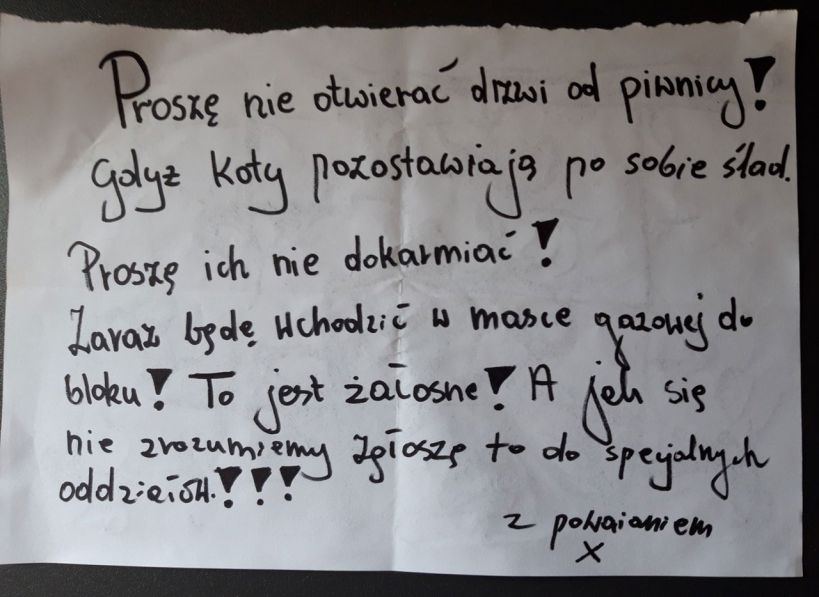 Proszę nie otwierać drzwi od piwnicy!
Gdyż koty pozostawiają po sobie ślad.
Proszę ich nie dokarmiać!
Zaraz będę wchodzić w masce gazowej do
bloku! To jest żałosne! A jeh się
nie zrozumiemy zgłoszę to do specjalnych
oddziałów.!!!
z poważaniem
X